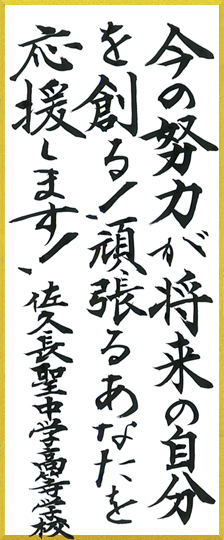 今の努力が将来の自分
を創る!頑張るあなたを
応援します!
佐久長聖中学高等学校